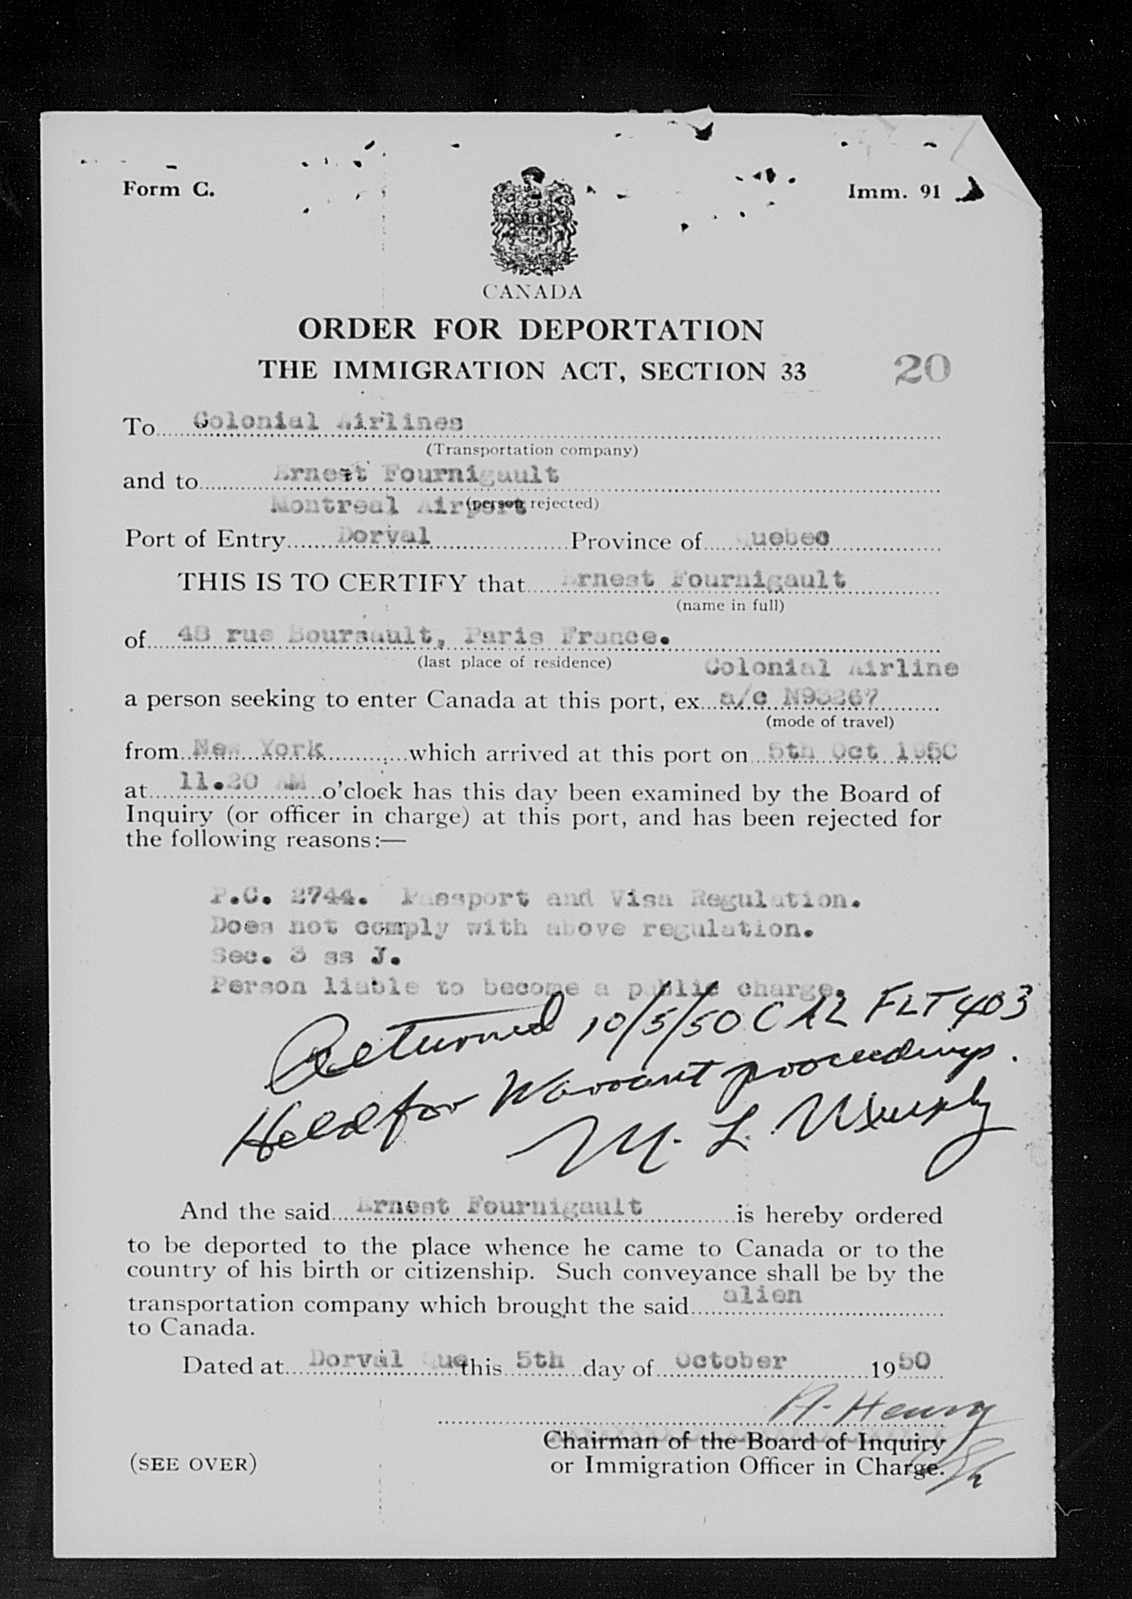 Form C.
Imm. 91
CANADA
ORDER FOR DEPORTATION
THE IMMIGRATION ACT, SECTION 33
20
To Colonial Airlines
(Transportation company)
and to Ernest Fournigault
Montreal Airport (person rejected)
Port of Entry Dorval Province of Quebec
THIS IS TO CERTIFY that Ernest Fournigault
(name in full)
of 48 rue Boursault, Paris France.
(last place of residence) Colonial Airline
a person seeking to enter Canada at this port, ex a/c N93267
(mode of travel)
from New York which arrived at this port on 5th Oct 1950
at 11.20 AM o'clock has this day been examined by the Board of
Inquiry (or officer in charge) at this port, and has been rejected for
the following reasons:—
P.C. 2744. Passport and Visa Regulation.
Does not comply with above regulation.
Sec. 3 ss J.
Person liable to become a public charge.
Returned 10/5/50 CAL FLT 403
Held for Warrant proceedings.
M. L. Murphy
And the said Ernest Fournigault is hereby ordered
to be deported to the place whence he came to Canada or to the
country of his birth or citizenship. Such conveyance shall be by the
transportation company which brought the said alien
to Canada.
Dated at Dorval Que this 5th day of October 1950
Henry
Chairman of the Board of Inquiry
(SEE OVER)
or Immigration Officer in Charge.